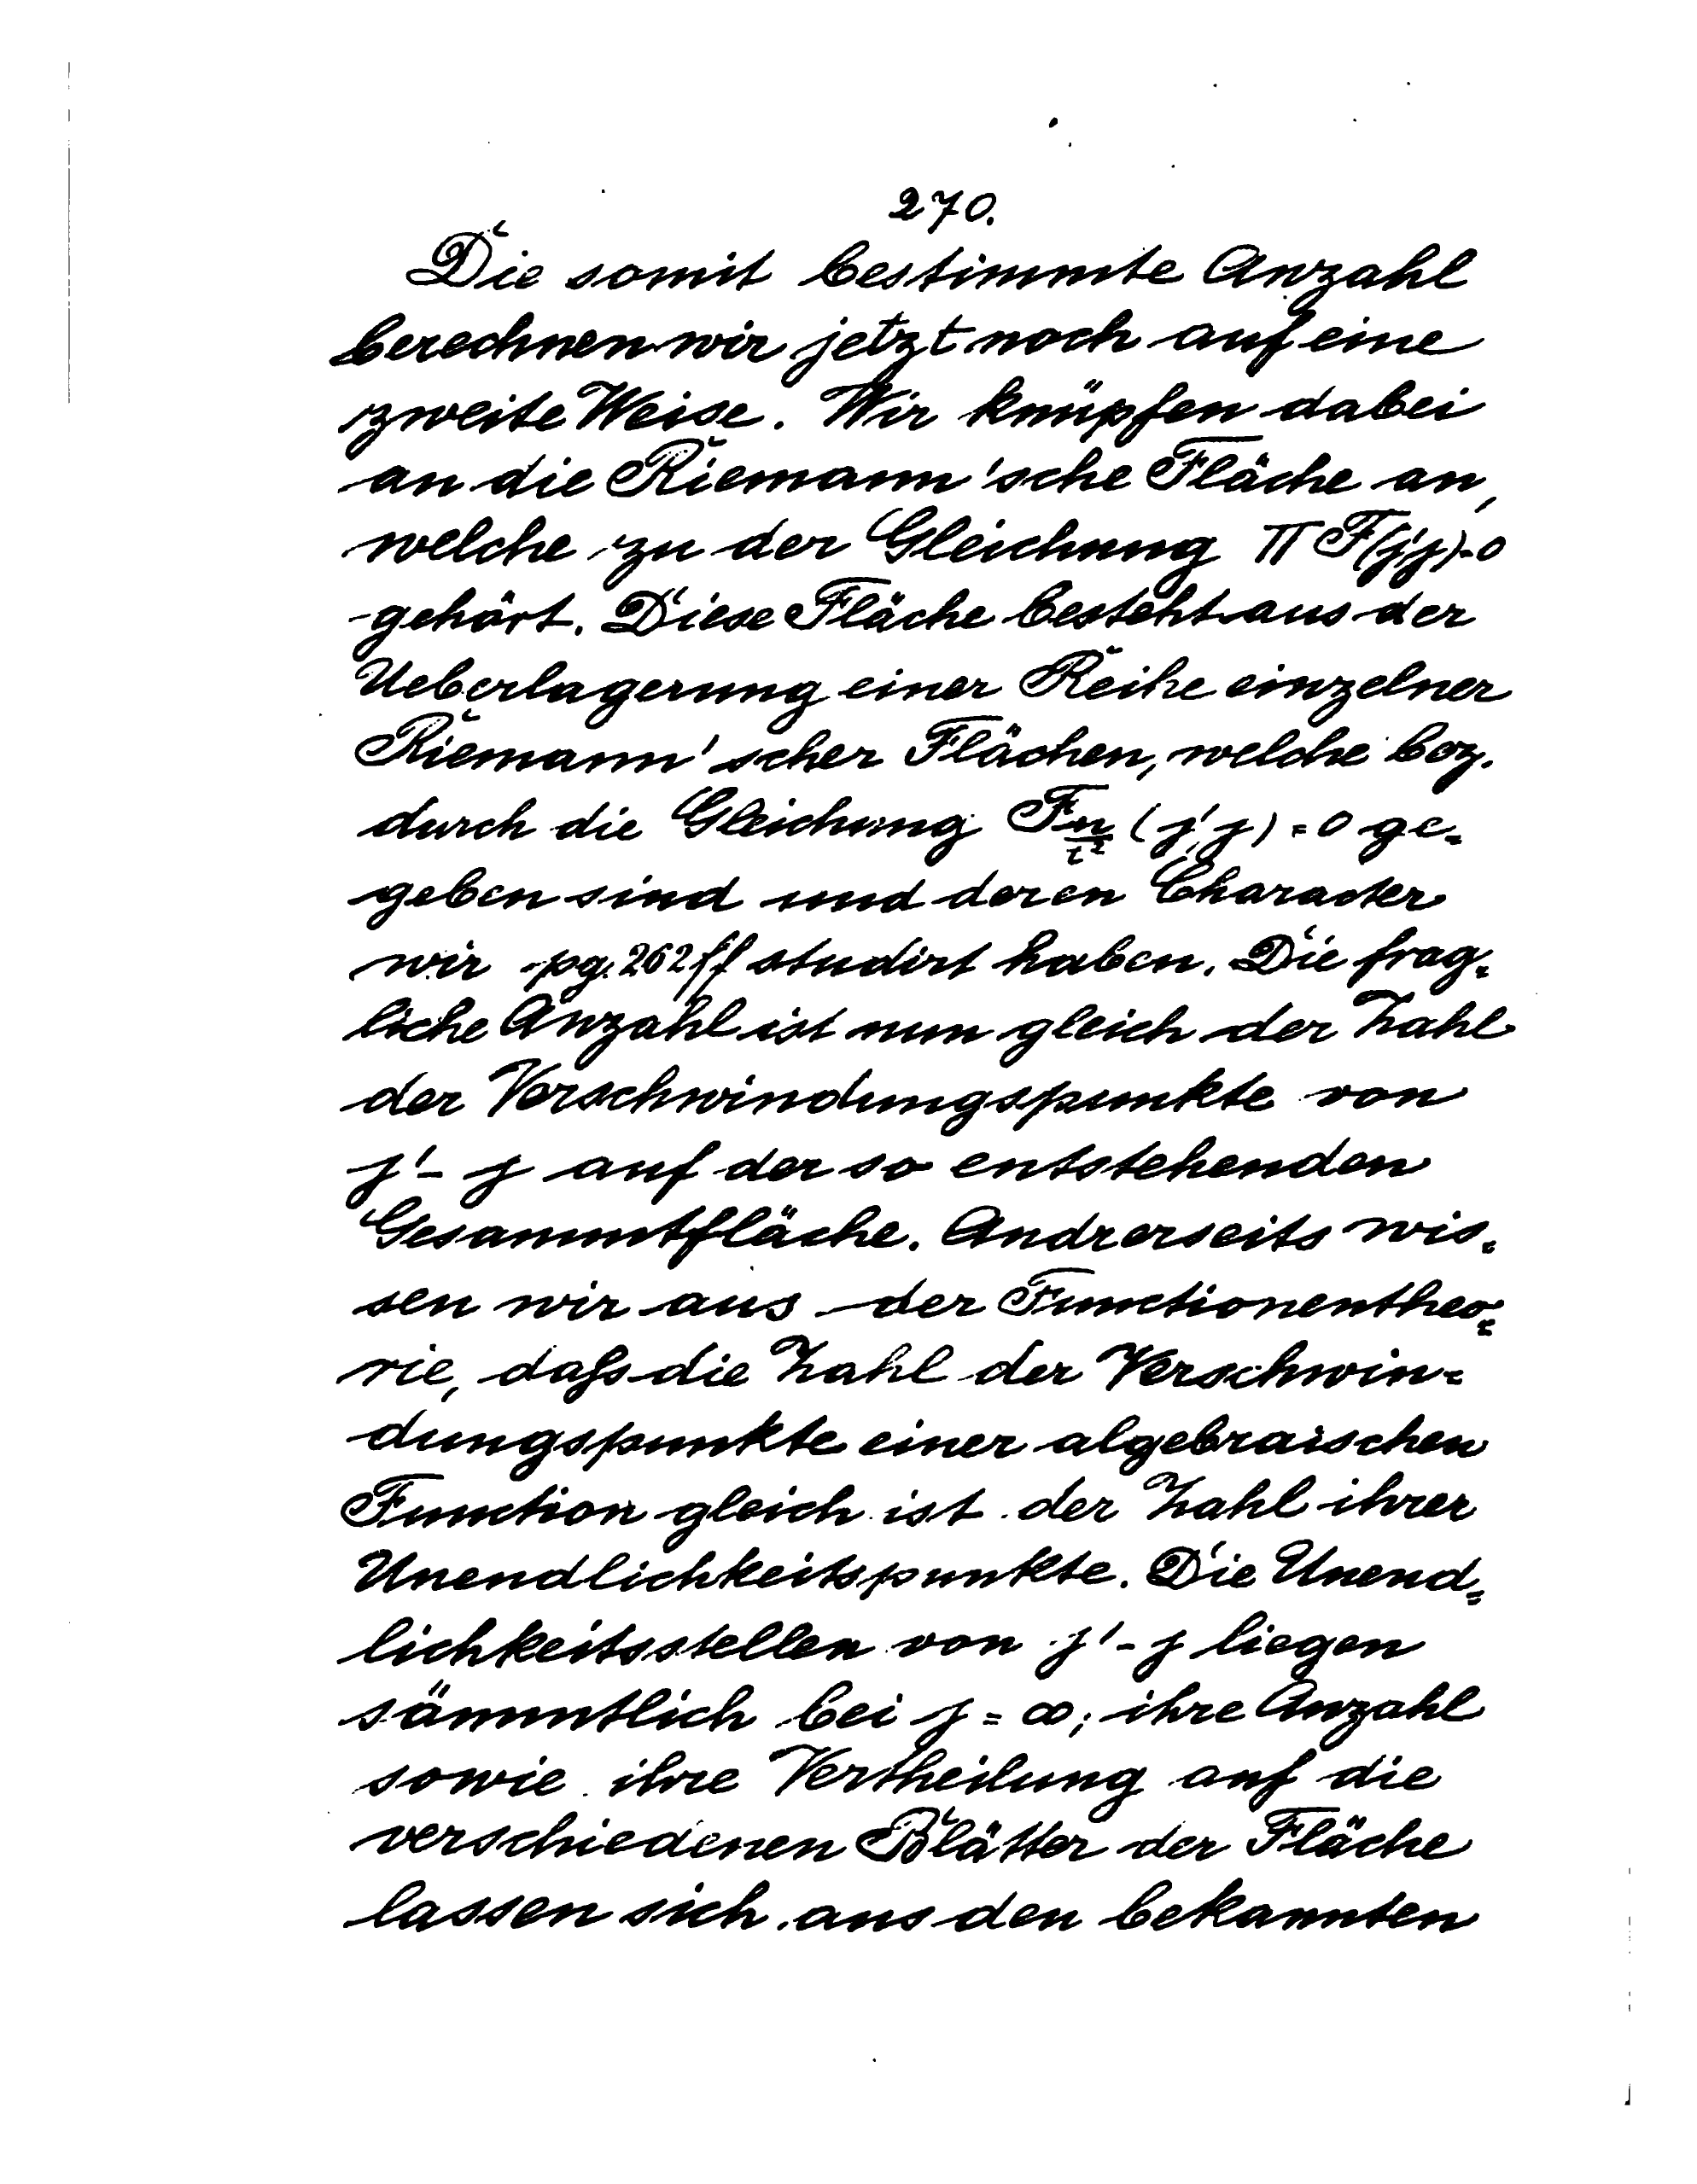 270.
Die somit bestimmte Anzahl
berechnen wir jetzt noch auf eine
zweite Weise. Wir knüpfen dabei
an die Riemann'sche Fläche an,
welche zu der Gleichung Π F(j'j)=0
gehört. Diese Fläche besteht aus der
Ueberlagerung einer Reihe einzelner
Riemann'scher Flächen, welche bez.
durch die Gleichung F_{n/t²} (j', j) = 0 ge=
geben sind und deren Character
wir pg. 262 ff studirt haben. Die frag=
liche Anzahl ist nun gleich der Zahl
der Verschwindungspunkte von
j'-j auf der so entstehenden
Gesammtfläche. Andrerseits wis=
sen wir aus der Functionentheo=
rie, daß die Zahl der Verschwin=
dungspunkte einer algebraischen
Function gleich ist der Zahl ihrer
Unendlichkeitspunkte. Die Unend=
lichkeitsstellen von j'-j liegen
sämmtlich bei j = ∞; ihre Anzahl
sowie ihre Vertheilung auf die
verschiedenen Blätter der Fläche
lassen sich aus den bekannten